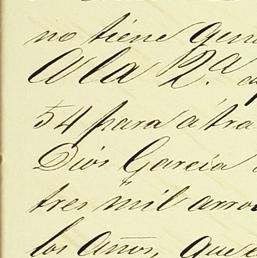 no tiene
A la 2.ª
54 para á tra
Dios Garcia
tres mil arro
los Años, que